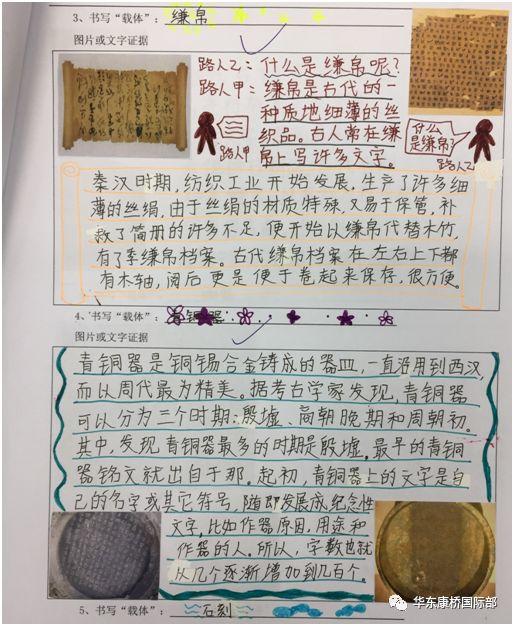 3、书写“载体”：缣帛
图片或文字证据
路人乙：什么是缣帛呢？
路人甲：缣帛是古代的一
种质地细薄的丝
织品。古人常在缣
帛上写许多文字。
路人甲
什么
是缣帛？
路人乙
秦汉时期，纺织工业开始发展，生产了许多细
薄的丝绢，由于丝绢的材质特殊，又易于保管，补
救了简册的许多不足，便开始以缣帛代替木竹，
有了季缣帛档案。古代缣帛档案在左右上下都
有木轴，阅后更是便于卷起来保存，很方便。
4、书写“载体”：青铜器
图片或文字证据
青铜器是铜锡合金铸成的器皿，一直沿用到西汉，
而以周代最为精美。据考古学家发现，青铜器
可以分为三个时期：殷墟、商朝晚期和周朝初。
其中，发现青铜器最多的时期是殷墟。最早的青铜
器铭文就出自于那。起初，青铜器上的文字是自
己的名字或其它符号，随即发展成纪念性
文字，比如作器原因，用途和
作器的人。所以，字数也就
从几个逐渐增加到几百个。
5、书写“载体”：石刻
华东康桥国际部